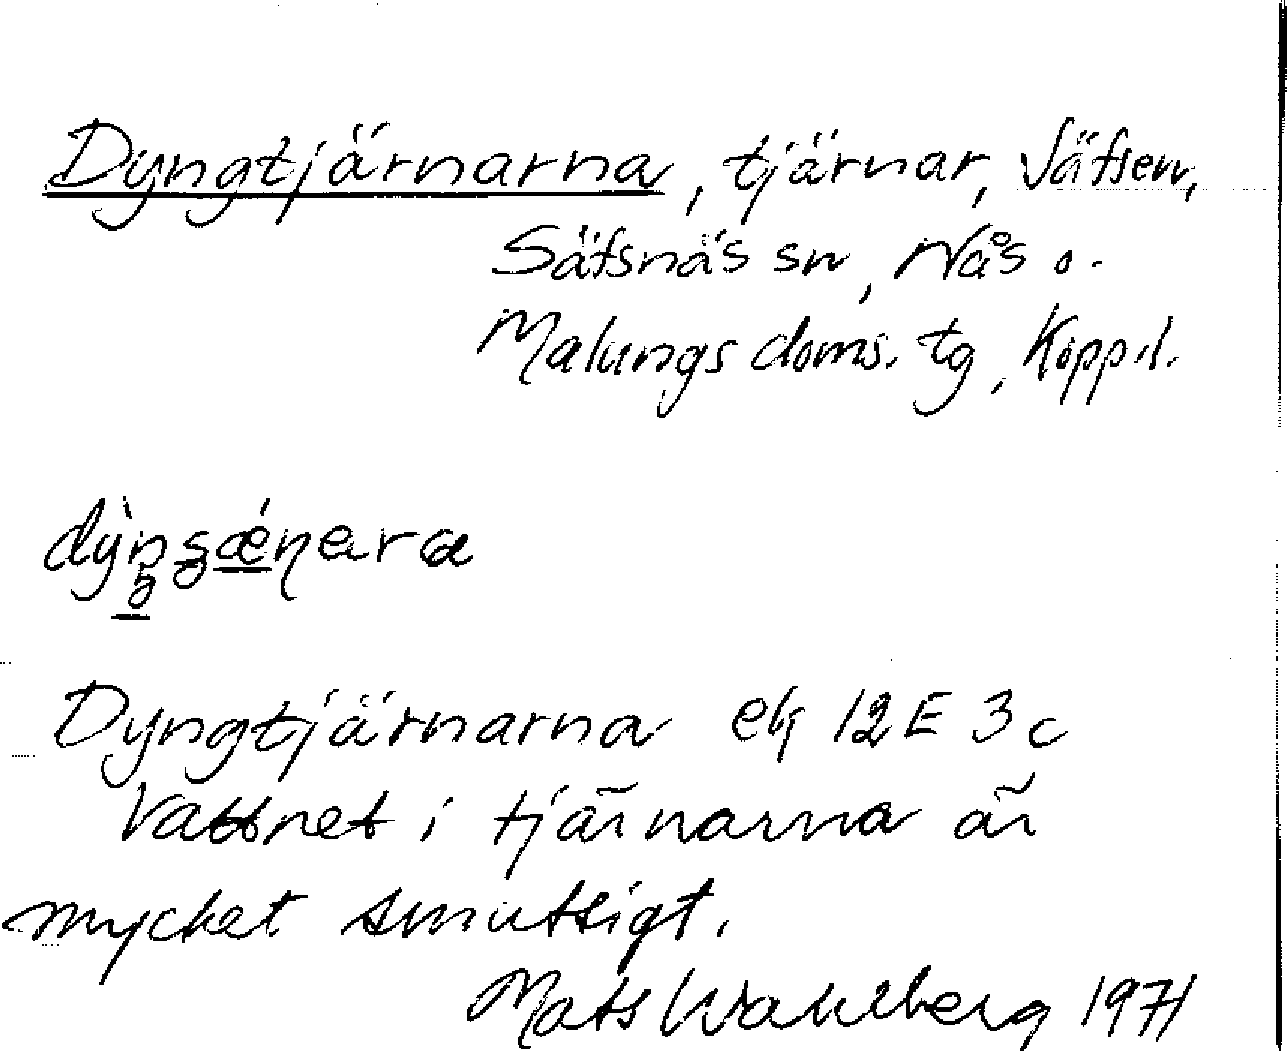 Dyngtjärnarna, tjärnar, Säfsen,
Säfsnäs sn, Nås o.
Malungs doms. tg, Kopp. l.
Dyngtjärnarna ek 12E 3c
Vattnet i tjärnarna är
mycket smutsigt.
Mats Wahlberg 1971